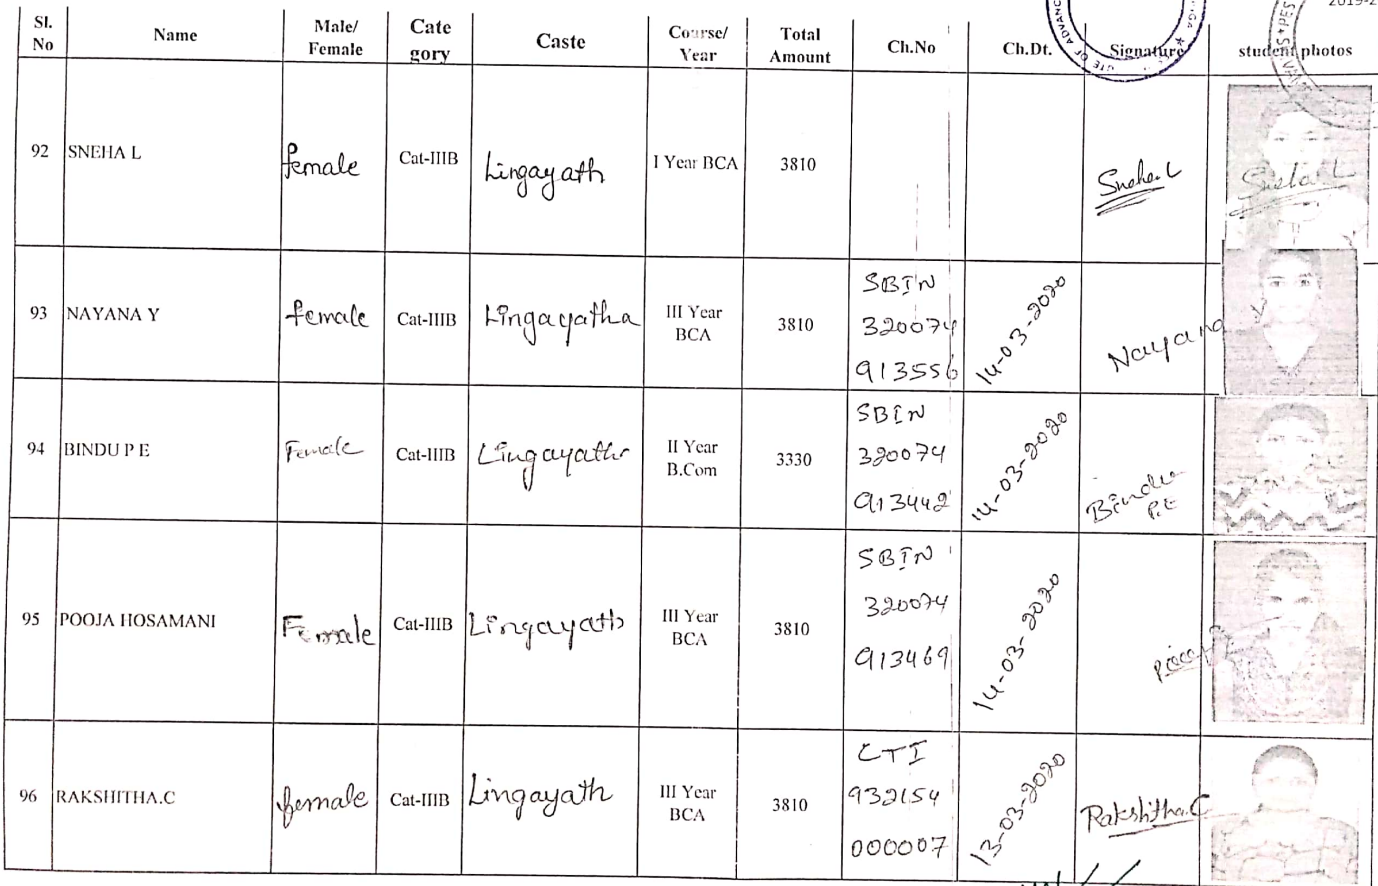 2019-2
OF ADVANC
GA ★
TE OF ADVA
★ PES
SHIVA
Sl. No Name Male/ Female Cate gory Caste Course/ Year Total Amount Ch.No Ch.Dt. Signature student photos
92 SNEHA L female Cat-IIIB Lingayath I Year BCA 3810 Sneha L Sneha L
93 NAYANA Y female Cat-IIIB Lingayatha III Year BCA 3810 SBIN 320074 913556 14-03-2020 Nayana Y
94 BINDU P E Female Cat-IIIB II Year B.Com 3330 SBIN 320074 913442 14-03-2020 Bindu P.E
95 POOJA HOSAMANI Female Cat-IIIB Lingayath III Year BCA 3810 SBIN 320074 913469 14-03-2020
96 RAKSHITHA.C female Cat-IIIB Lingayath III Year BCA 3810 CTI 932154 000007 13-03-2020 Rakshitha.C